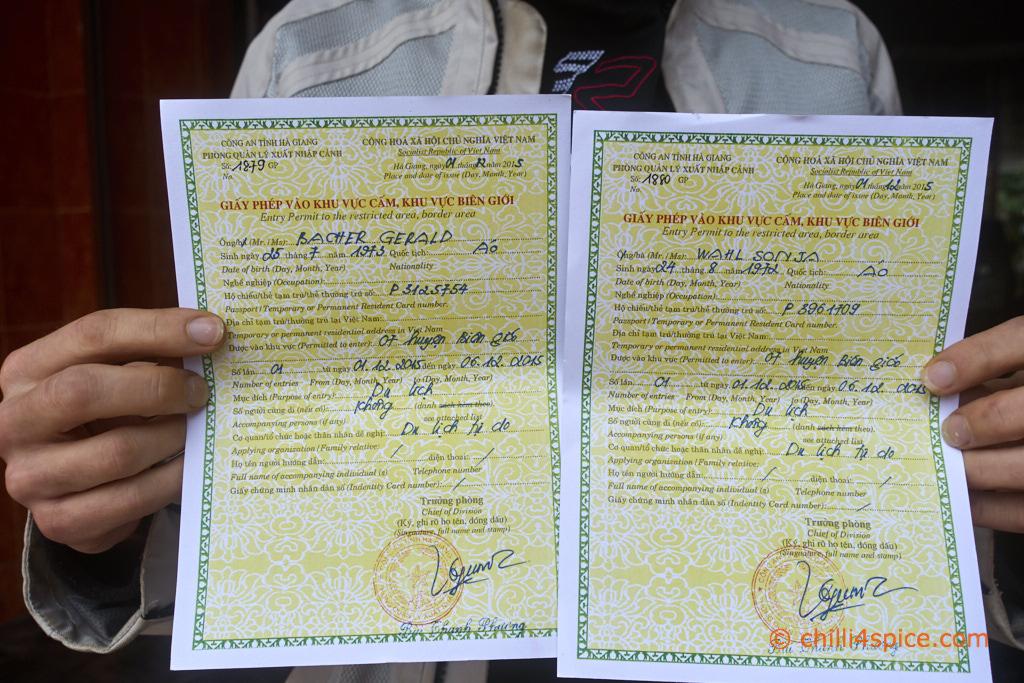 32
CÔNG AN TỈNH HÀ GIANG
PHÒNG QUẢN LÝ XUẤT NHẬP CẢNH
Số: 1879 GP
No.
CỘNG HOÀ XÃ HỘI CHỦ NGHĨA VIỆT NAM
Socialist Republic of Viet Nam
Hà Giang, ngày 01 tháng 12 năm 2015
Place and date of issue (Day, Month, Year)
GIẤY PHÉP VÀO KHU VỰC CẤM, KHU VỰC BIÊN GIỚI
Entry Permit to the restricted area, border area
Ông/bà (Mr. /Ms): BACHER GERALD
Sinh ngày 25 tháng 7 năm 1973 Quốc tịch: Áo
Date of birth (Day, Month, Year) Nationality
Nghề nghiệp (Occupation):
Hộ chiếu/thẻ tạm trú/thẻ thường trú số: P 3125754
Passport/Temporary or Permanent Resident Card number.
Địa chỉ tạm trú/thường trú tại Việt Nam:
Temporary or permanent residential address in Viet Nam
Được vào khu vực (Permitted to enter): 07 huyện Biên giới
Số lần 01 từ ngày 01.12.2015 đến ngày 06.12.2015
Number of entries From (Day, Month, Year) to (Day, Month, Year)
Mục đích (Purpose of entry): Du lịch
Số người cùng đi (nếu có): Không (danh sách kèm theo).
Accompanying persons (if any) see attached list
Cơ quan/tổ chức hoặc thân nhân đề nghị: Du lịch tự do
Applying organization/Family relative:
Họ tên người hướng dẫn: / điện thoại: /
Full name of accompanying individual (s) Telephone number
Giấy chứng minh nhân dân số (Indentity Card number): /
Trưởng phòng
Chief of Division
(Ký, ghi rõ họ tên, đóng dấu)
(Singnature, full name and stamp)
CÔNG AN TỈNH HÀ GIANG
PHÒNG QUẢN LÝ XUẤT NHẬP CẢNH
Số: 1880 GP
No.
CỘNG HOÀ XÃ HỘI CHỦ NGHĨA VIỆT NAM
Socialist Republic of Viet Nam
Hà Giang, ngày 01 tháng 12 năm 2015
Place and date of issue (Day, Month, Year)
GIẤY PHÉP VÀO KHU VỰC CẤM, KHU VỰC BIÊN GIỚI
Entry Permit to the restricted area, border area
Ông/bà (Mr. /Ms): WAHL SONJA
Sinh ngày 24 tháng 8 năm 1972 Quốc tịch: Áo
Date of birth (Day, Month, Year) Nationality
Nghề nghiệp (Occupation):
Hộ chiếu/thẻ tạm trú/thẻ thường trú số: P 3961709
Passport/Temporary or Permanent Resident Card number.
Địa chỉ tạm trú/thường trú tại Việt Nam:
Temporary or permanent residential address in Viet Nam
Được vào khu vực (Permitted to enter): 07 huyện Biên giới
Số lần 01 từ ngày 01.12.2015 đến ngày 06.12.2015
Number of entries From (Day, Month, Year) to (Day, Month, Year)
Mục đích (Purpose of entry): Du lịch
Số người cùng đi (nếu có): Không (danh sách kèm theo).
Accompanying persons (if any) see attached list
Cơ quan/tổ chức hoặc thân nhân đề nghị: Du lịch tự do
Applying organization/Family relative:
Họ tên người hướng dẫn: / điện thoại: /
Full name of accompanying individual (s) Telephone number
Giấy chứng minh nhân dân số (Indentity Card number): /
Trưởng phòng
Chief of Division
(Ký, ghi rõ họ tên, đóng dấu)
(Singnature, full name and stamp)
© chilli4spice.com